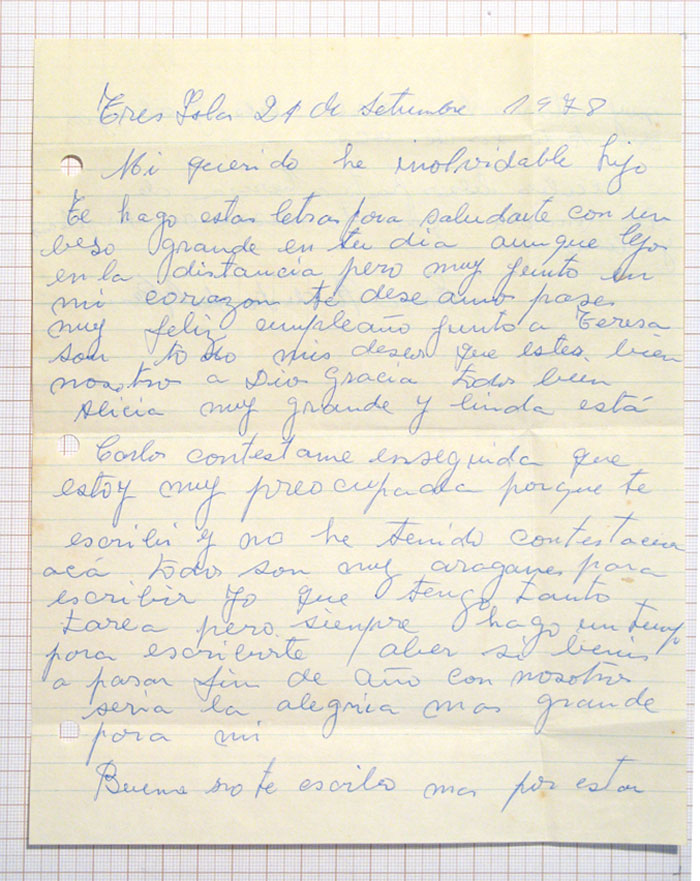 Tres Isla 21 de setiembre 1978
Mi querido he inolvidable hijo
te hago estas letras para saludarte con un
beso grande en tu dia aunque lejo
en la distancia pero muy junto en
mi corazon te deseamos pases
muy feliz cumpleaño junto a Teresa
son todo mis deseo que estes bien
nosotro a Dios Gracia todos bien
Alicia muy grande y linda está
Carlos contestame enseguida que
estoy muy preocupada porque te
escribi y no he tenido contestacion
acá todos son muy araganes para
escribir yo que tengo tanto
tarea pero siempre hago un tiempo
para escribirte aber si benis
a pasar fin de año con nosotros
seria la alegria mas grande
para mi
Bueno no te escribo mas por estar